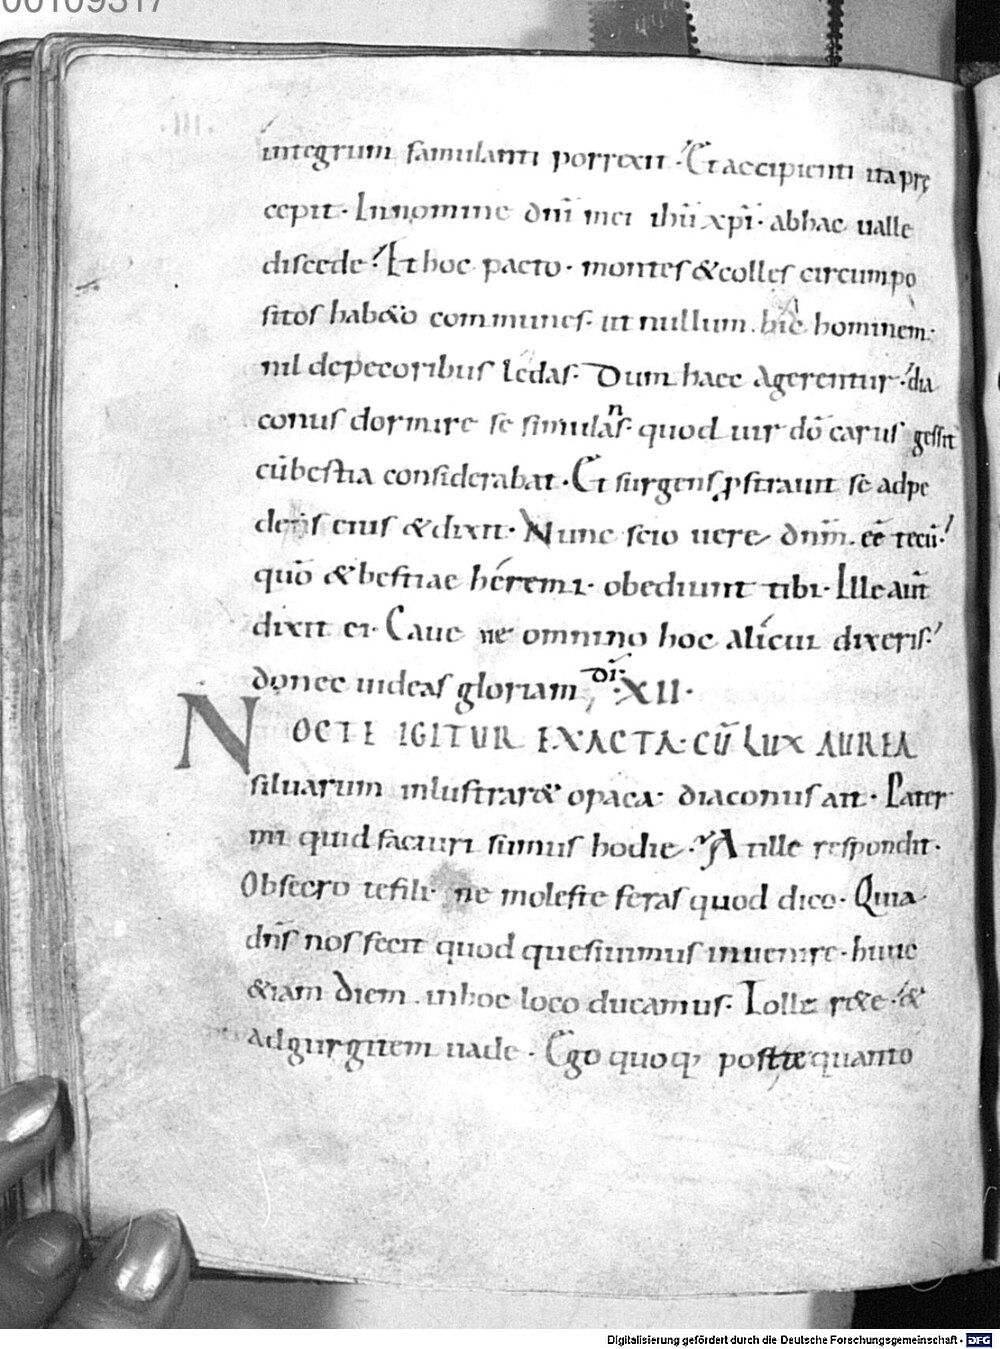 00109317
integrum famulanti porrexit · Et accipienti ita prę
cepit · In nomine dn̄i mei ihū xp̄i · ab hac ualle
discede · Et hoc pacto · montes & colles circumpo
sitos hab&o communes · ut nullum hic hominem ·
nil de pecoribus ledas · Dum haec agerentur · dia
conus dormire se simulans · quod uir dō carus gessit
cū bestia considerabat · Et surgens ꝓstrauit se ad pe
des eius & dixit · Nunc scio uere dn̄m · eē tecū ·
quō & bestiae heremi · obediunt tibi · Ille aūt
dixit ei · Caue ne omnino hoc alicui dixeris
donec uideas gloriam dī · XII ·
NOCTE IGITUR EXACTA · CŪ LUX AUREA
siluarum inlustrar& opaca · diaconus ait · Pater
mi quid facturi sumus hodie · At ille respondit ·
Obsecro te fili · ne moleste feras quod dico · Quia
dn̄s nos fecit quod quesiuimus inuenire · hunc
&iam diem in hoc loco ducamus · Tolle r&e · &
ad gurgitem uade · Ego quoq; post te quanto
Digitalisierung gefördert durch die Deutsche Forschungsgemeinschaft - DFG